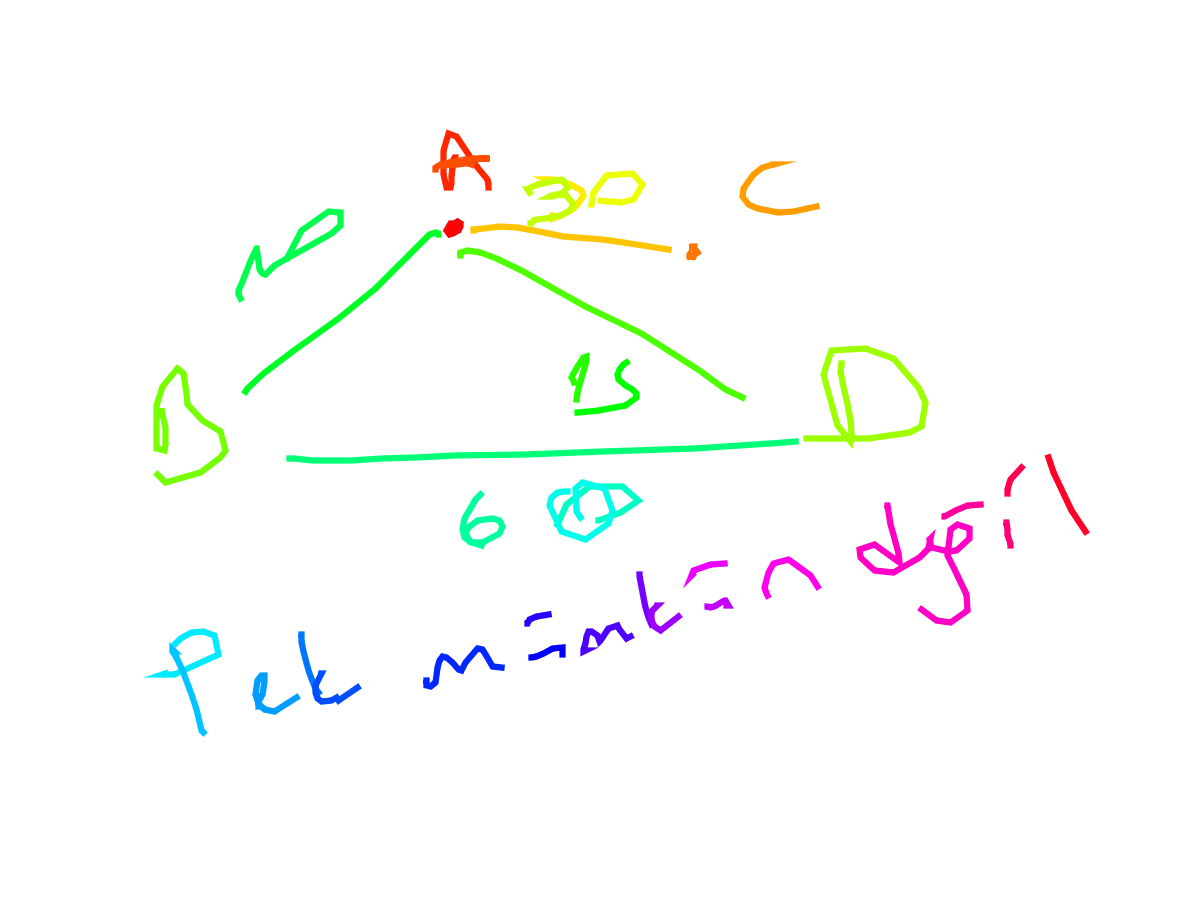 A 30 C
10
B 15 D
600
Pek mümkün değil